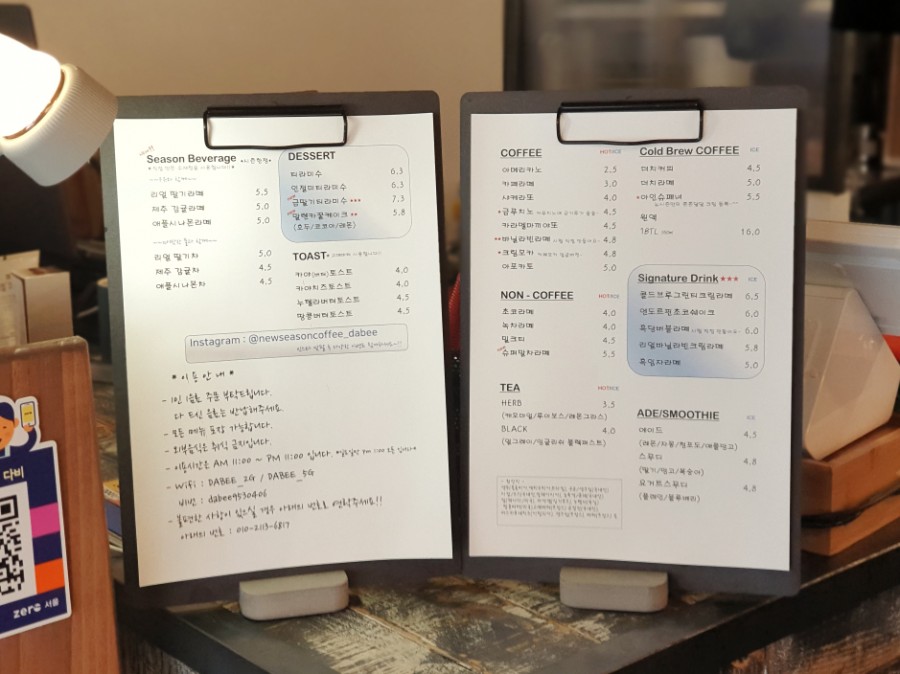 Season Beverage
리얼 딸기라떼 5.5
제주 감귤라떼 5.0
애플시나몬라떼 5.0
리얼 딸기차 5.0
제주 감귤차 4.5
애플시나몬차 4.5
DESSERT
티라미수 6.3
인절미티라미수 6.3
금딸기티라미수 *** 7.3
5.8
(호두/초코이/레몬)
TOAST
카야 토스트 4.0
카야치즈토스트 4.0
누텔라버터토스트 4.5
땅콩버터토스트 4.5
Instagram : @newseasoncoffee_dabee
* 이용 안내 *
- 1인 1음료 주문 부탁드립니다.
다 드신 음료는 반납해주세요.
- 모든 메뉴 포장 가능합니다.
- 외부음식은 취식 금지입니다.
- 이용시간은 AM 11:00 ~ PM 11:00 입니다.
- WiFi : DABEE_2G / DABEE_5G
비번 : dabee9530406
- 불편한 사항이 있으실 경우 아래의 번호로 연락주세요!!
아래의 번호 : 010-2113-6817
COFFEE HOT/ICE
아메리카노 2.5
카페라떼 3.0
샤케라또 4.0
* 금루치노 4.5
카라멜마끼야또 4.5
** 바닐라빈라떼 4.8
* 크림모카 4.8
아포카토 5.0
NON - COFFEE HOT/ICE
초코라떼 4.0
녹차라떼 4.0
밀크티 4.5
슈퍼말차라떼 5.5
TEA HOT/ICE
HERB 3.5
(캐모마일/루이보스/레몬그라스)
BLACK 4.0
(얼그레이/잉글리쉬 블랙퍼스트)
Cold Brew COFFEE ICE
더치커피 4.5
더치라떼 5.0
* 아인슈페너 5.5
원액
1BTL 16.0
Signature Drink *** ICE
콜드브루그린티크림라떼 6.5
앤도르핀초코쉐이크 6.0
흑당버블라떼 6.0
리얼바닐라빈크림라떼 5.8
흑임자라떼 5.0
ADE/SMOOTHIE ICE
에이드 4.5
(레몬/자몽/청포도/애플망고)
스무디 4.8
(딸기/망고/복숭아)
요거트스무디 4.8
(플레인/블루베리)
다비
zero 서울